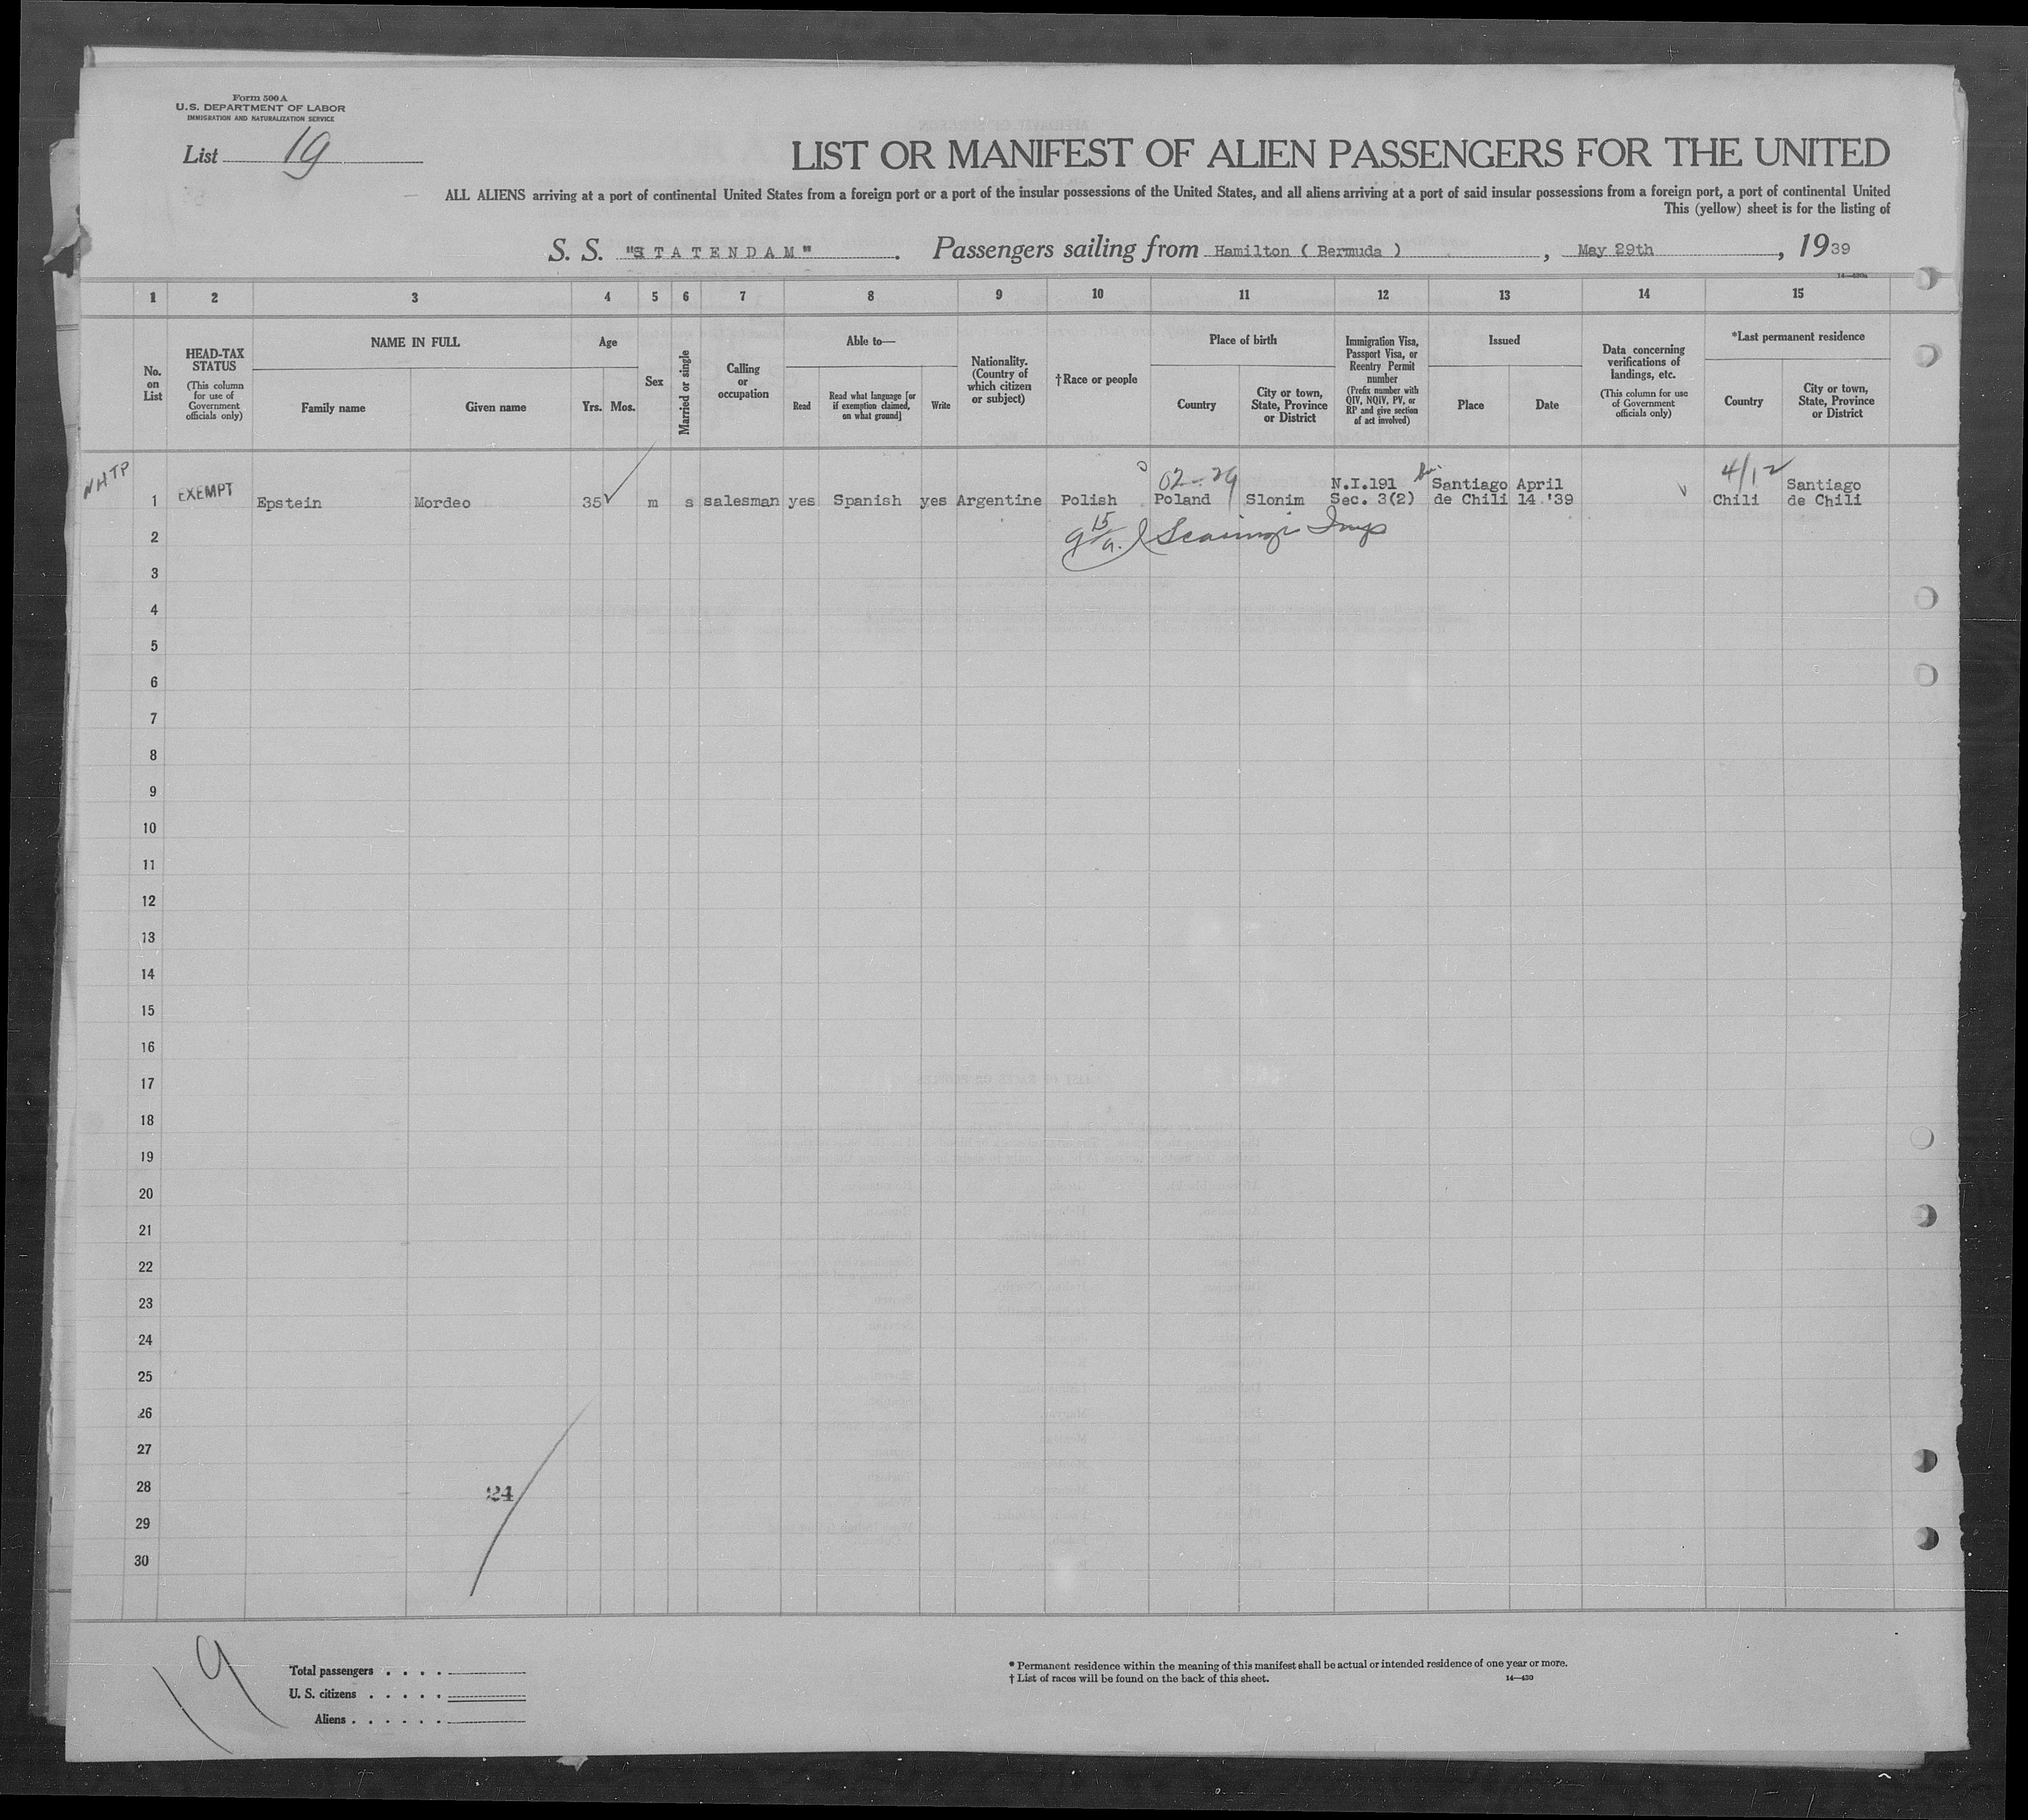 Form 500 A
U.S. DEPARTMENT OF LABOR
IMMIGRATION AND NATURALIZATION SERVICE
List 19
LIST OR MANIFEST OF ALIEN PASSENGERS FOR THE UNITED
ALL ALIENS arriving at a port of continental United States from a foreign port or a port of the insular possessions of the United States, and all aliens arriving at a port of said insular possessions from a foreign port, a port of continental United
This (yellow) sheet is for the listing of
S. S. "STATENDAM". Passengers sailing from Hamilton ( Bermuda ), May 29th, 1939
14—430a
1 2 3 4 5 6 7 8 9 10 11 12 13 14 15
No. on List
HEAD-TAX STATUS
(This column for use of Government officials only)
NAME IN FULL
Family name
Given name
Age
Yrs. Mos.
Sex
Married or single
Calling or occupation
Able to—
Read
Read what language [or if exemption claimed, on what ground]
Write
Nationality. (Country of which citizen or subject)
†Race or people
Place of birth
Country
City or town, State, Province or District
Immigration Visa, Passport Visa, or Reentry Permit number
(Prefix number with QIV, NQIV, PV, or RP and give section of act involved)
Issued
Place
Date
Data concerning verifications of landings, etc.
(This column for use of Government officials only)
*Last permanent residence
Country
City or town, State, Province or District
NHTP
02-29
4/12
N.I.191 Santiago April Santiago
1 EXEMPT Epstein Mordeo 35 m s salesman yes Spanish yes Argentine Polish Poland Slonim Sec. 3(2) de Chili 14 '39 Chili de Chili
2
3
4
5
6
7
8
9
10
11
12
13
14
15
16
17
18
19
20
21
22
23
24
25
26
27
28
24
29
30
19
Total passengers
U. S. citizens
Aliens
* Permanent residence within the meaning of this manifest shall be actual or intended residence of one year or more.
† List of races will be found on the back of this sheet. 14—430